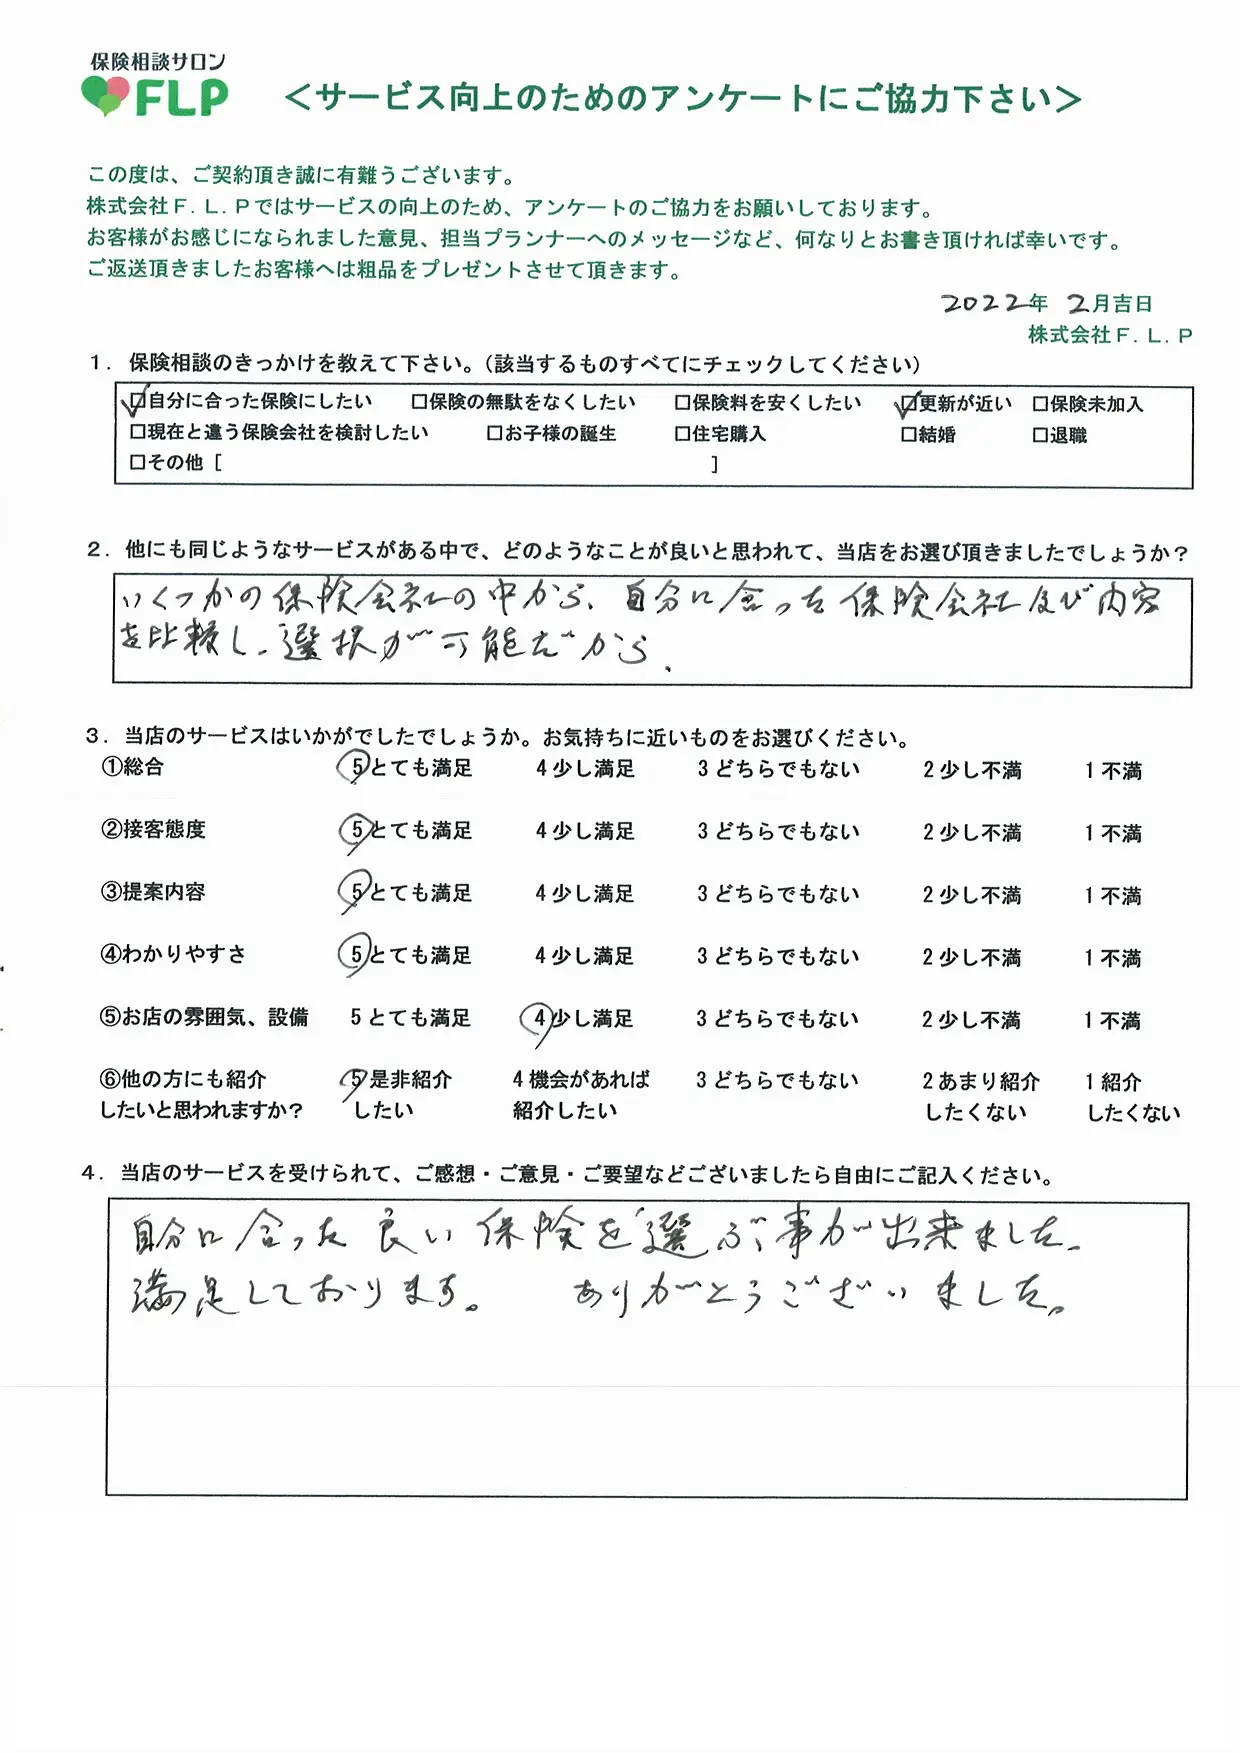 保険相談サロン
FLP
＜サービス向上のためのアンケートにご協力下さい＞
この度は、ご契約頂き誠に有難うございます。
株式会社Ｆ.Ｌ.Ｐではサービスの向上のため、アンケートのご協力をお願いしております。
お客様がお感じになられました意見、担当プランナーへのメッセージなど、何なりとお書き頂ければ幸いです。
ご返送頂きましたお客様へは粗品をプレゼントさせて頂きます。
2022年 2月吉日
株式会社Ｆ.Ｌ.Ｐ
１. 保険相談のきっかけを教えて下さい。（該当するものすべてにチェックしてください）
☑自分に合った保険にしたい □保険の無駄をなくしたい □保険料を安くしたい ☑更新が近い □保険未加入
□現在と違う保険会社を検討したい □お子様の誕生 □住宅購入 □結婚 □退職
□その他［ ］
２. 他にも同じようなサービスがある中で、どのようなことが良いと思われて、当店をお選び頂きましたでしょうか？
いくつかの保険会社の中から、自分に合った保険会社及び内容
を比較し、選択が可能だから。
３. 当店のサービスはいかがでしたでしょうか。お気持ちに近いものをお選びください。
①総合 5とても満足 4少し満足 3どちらでもない 2少し不満 1不満
②接客態度 5とても満足 4少し満足 3どちらでもない 2少し不満 1不満
③提案内容 5とても満足 4少し満足 3どちらでもない 2少し不満 1不満
④わかりやすさ 5とても満足 4少し満足 3どちらでもない 2少し不満 1不満
⑤お店の雰囲気、設備 5とても満足 4少し満足 3どちらでもない 2少し不満 1不満
⑥他の方にも紹介 5是非紹介 4機会があれば 3どちらでもない 2あまり紹介 1紹介
したいと思われますか？ したい 紹介したい したくない したくない
４. 当店のサービスを受けられて、ご感想・ご意見・ご要望などございましたら自由にご記入ください。
自分に合った良い保険を選ぶ事が出来ました。
満足しております。 ありがとうございました。